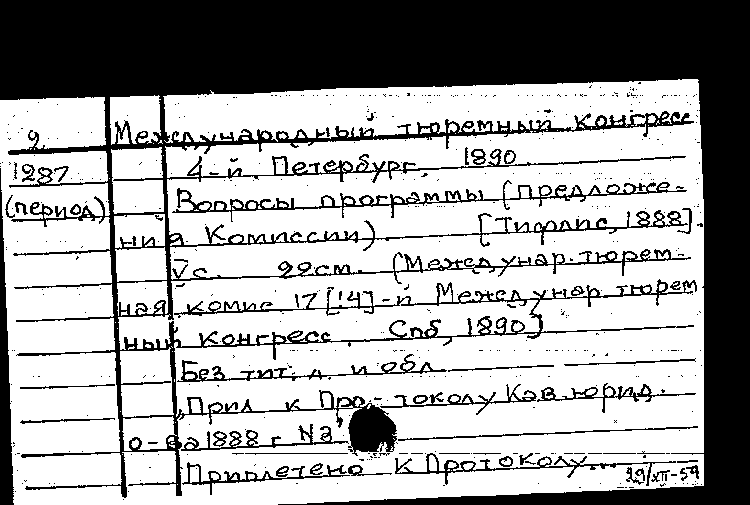 2. Международный тюремный конгресс
1287 4-й. Петербург. 1890
(период) Вопросы программы (предложе-
ния Комиссии). [Тифлис, 1888].
V с. 22см. (Междунар. тюрем-
ная комис. 17[!4]-й Междунар. тюрем
ный конгресс. Спб, 1890]
Без тит. л. и обл.
„Прил к Про-токолу Кав юрид.
о-ва 1888 г N2"
Приплетено к Протоколу...
29/XII-59